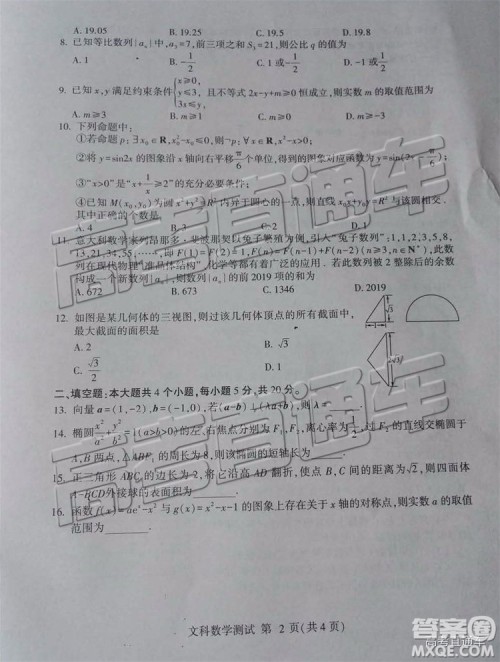 A. 19.05 B. 19.25 C. 19.5 D. 19.8
8. 已知等比数列{aₙ}中,a₃=7,前三项之和S₃=21,则公比q的值为
A. 1 B. -1/2 C. 1或-1/2 D. -1或1/2
9. 已知x,y满足约束条件{x≥0, y≤3, 3x≤y,且不等式2x-y+m≥0恒成立,则实数m的取值范围为
A. m≥3 B. m≥1 C. m≥0 D. m≥-3
10. 下列命题中:
①若命题p:∃x₀∈R,x₀²-x₀≤0,则¬p:∀x∈R,x²-x>0;
②将y=sin2x的图象沿x轴向右平移π/6个单位,得到的图象对应函数为y=sin(2x-π/6);
③"x>0"是"x+1/x≥2"的充分必要条件;
④已知M(x₀,y₀)为圆x²+y²=R²内异于圆心的一点,则直线x₀x+y₀y=R²与该圆相交.
其中正确的个数是
A. 4 B. 3 C. 2 D. 1
11. 意大利数学家列昂那多·斐波那契以兔子繁殖为例,引入"兔子数列":1,1,2,3,5,8,
13,21,34,55,…,即F(1)=F(2)=1,F(n)=F(n-1)+F(n-2)(n≥3,n∈N*),此数
列在现代物理"准晶体结构"、化学等都有着广泛的应用.若此数列被2整除后的余数
构成一个新数列{aₙ},则数列{aₙ}的前2019项的和为
A. 672 B. 673 C. 1346 D. 2019
12. 如图是某几何体的三视图,则过该几何体顶点的所有截面中,
最大截面的面积是
A. 2 B. √3
C. √3/2 D. 1
二、填空题:本大题共4个小题,每小题5分,共20分.
13. 向量a=(1,-2),b=(-1,0),若(a-b)⊥(λa+b),则λ=
14. 椭圆x²/a²+y²/b²=1(a>b>0)的左、右焦点分别为F₁,F₂,离心率为1/2,过F₂的直线交椭圆于
A,B两点,△ABF₁的周长为8,则该椭圆的短轴长为
15. 正三角形ABC的边长为2,将它沿高AD翻折,使点B与点C间的距离为√2,则四面体
A-BCD外接球的表面积为
16. 函数f(x)=aeˣ-x²与g(x)=x²-x-1的图象上存在关于x轴的对称点,则实数a的取值
范围为
文科数学测试 第2页(共4页)
高考直通车
作业帮
MXQE.COM